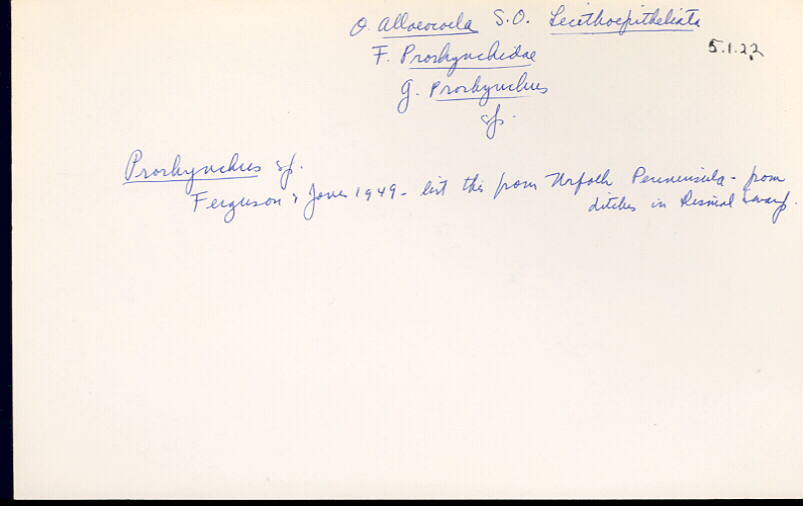 O. Alloeocoela S.O. Lecithoepitheliata
5.1.22
F. Prorhynchidae
G. Prorhynchus
sp.
Prorhynchus sp.
Ferguson & Jones 1949 - list this from Norfolk Penninsula - from
ditches in Dismal Swamp.